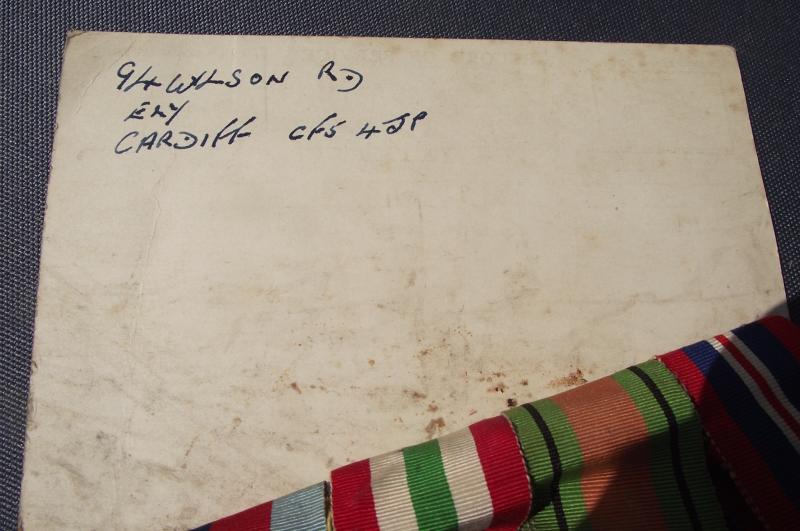 94 WILSON RD
ELY
CARDIFF CF5 4JP